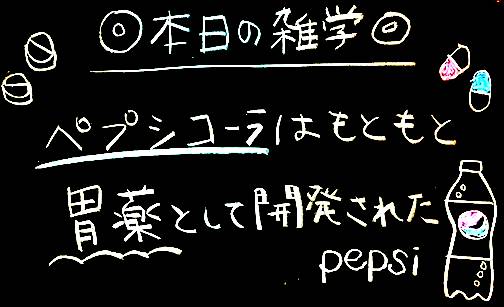 ◎本日の雑学◎
ペプシコーラはもともと
胃薬として開発された
pepsi